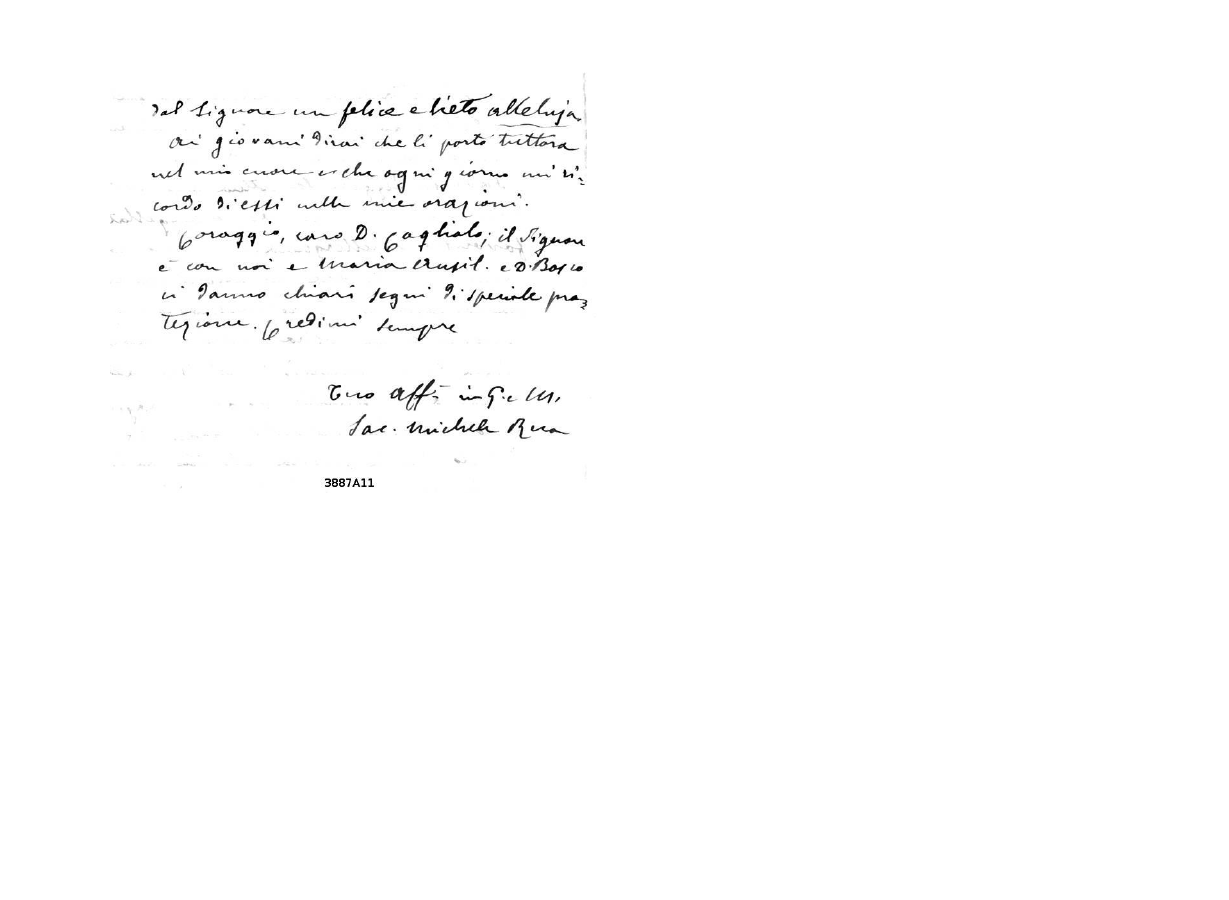 dal Signore un felice e lieto alleluja.
Ai giovani dirai che li porto tuttora
nel mio cuore e che ogni giorno mi ri=
cordo di essi nelle mie orazioni.
Coraggio, caro D. Cagliolo; il Signore
è con noi e Maria Ausil. e D. Bosco
ci danno chiari segni di speciale pro=
tezione. Credimi sempre
Tuo aff. in G. e M.
Sac. Michele Rua
3887A11